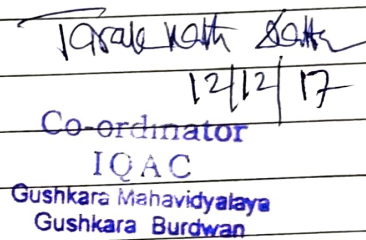 Tarak Nath Datta
12/12/17
Co-ordinator
IQAC
Gushkara Mahavidyalaya
Gushkara Burdwan